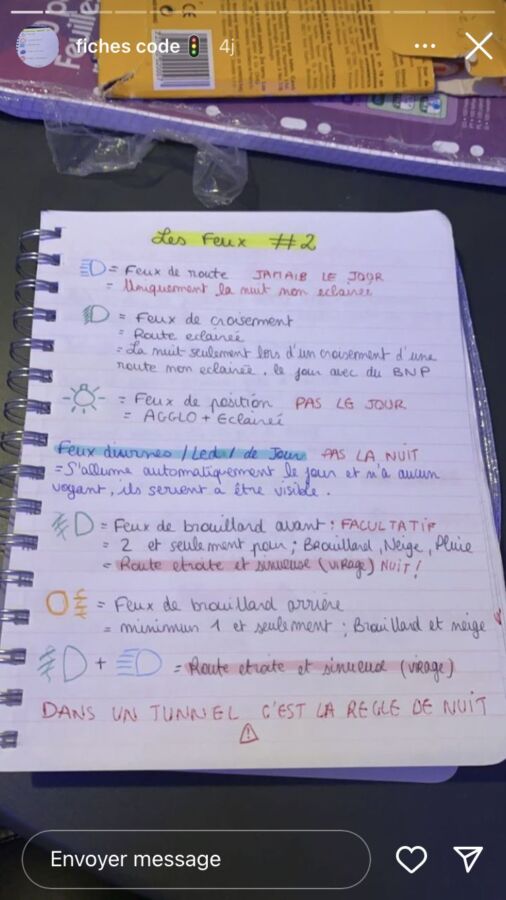 fiches code 🚦 4j
Les Feux #2
= Feux de route JAMAIS LE JOUR
= Uniquement la nuit non eclairée
= Feux de croisement
= Route eclairée
= La nuit seulement lors d'un croisement d'une
route non eclairée. le jour avec du BNP
= Feux de position PAS LE JOUR
= AGGLO + Eclairée
Feux diurnes / Led / de Jour PAS LA NUIT
= S'allume automatiquement le jour et n'a aucun
voyant, ils servent à être visible.
= Feux de brouillard avant : FACULTATIF
= 2 et seulement pour ; Brouillard, Neige, Pluie
= Route etroite et sinueuse (virage) NUIT !
= Feux de brouillard arrière
= minimum 1 et seulement ; Brouillard et neige
+ = Route etroite et sinueuse (virage)
DANS UN TUNNEL C'EST LA REGLE DE NUIT
Envoyer message